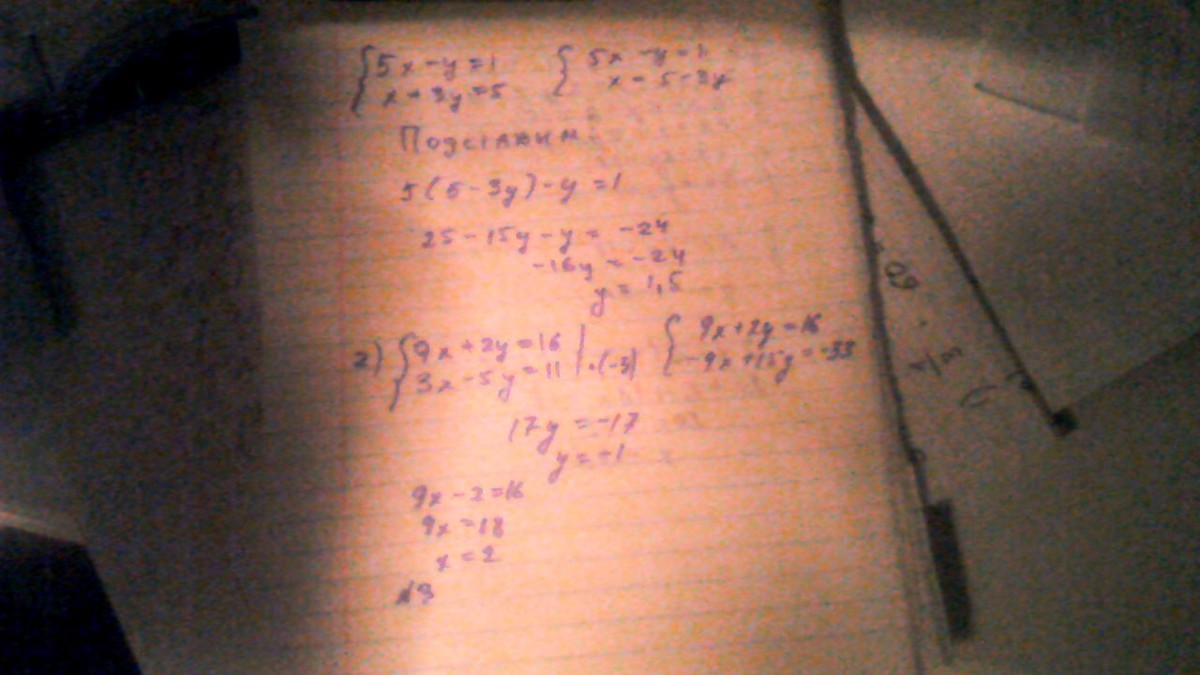 {5x-y=1 {5x-y=1
{x+3y=5 {x=5-3y
Подставим:
5(5-3y)-y=1
25-15y-y=-24
-16y=-24
y=1,5
2) {9x+2y=16 | {9x+2y=16
{3x-5y=11 | ·(-3) {-9x+15y=-33
17y=-17
y=-1
9x-2=16
9x=18
x=2